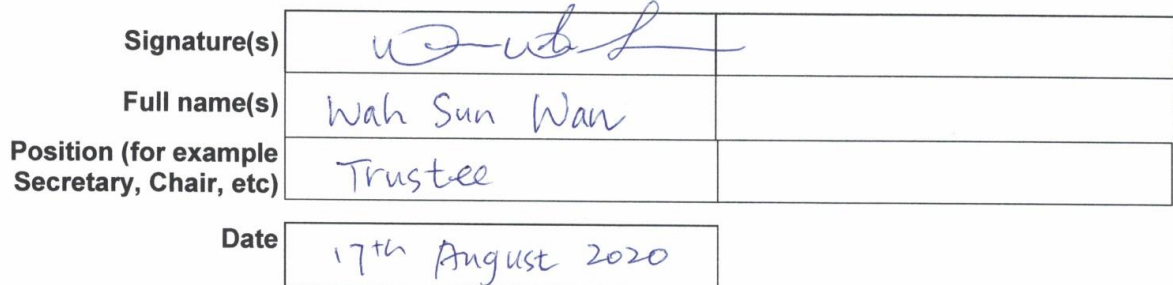 Signature(s)
Full name(s) Wah Sun Wan
Position (for example
Secretary, Chair, etc) Trustee
Date 17th August 2020